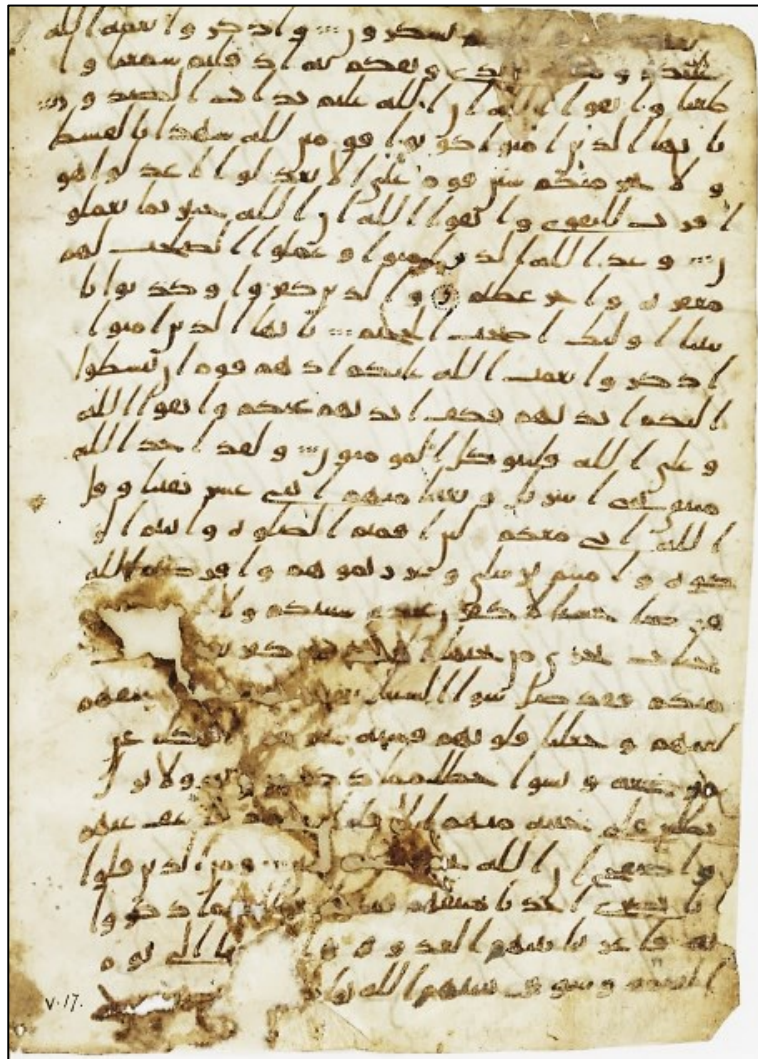 تشكرون واذكروا نعمه الله
عليكم و الذي وثقكم به اذ قلتم سمعنا وا
طعنا واتقوا الله ان الله عليم بذات الصدور
يايها الذين امنوا كونوا قومين لله شهدا بالقسط
ولا يجرمنكم شنن قوم على الا تعدلوا اعدلوا هو
اقرب للتقوى واتقوا الله ان الله خبير بما تعملو
ن وعد الله الذين امنوا وعملوا الصلحت لهم
مغفره واجر عظيم والذين كفروا وكذبوا با
يتنا اوليك اصحب الجحيم يايها الذين امنوا
اذكروا نعمت الله عليكم اذ هم قوم ان يبسطوا
اليكم ايديهم فكف ايديهم عنكم واتقوا الله
وعلى الله فليتوكل المومنون ولقد اخذ الله
ميثق بني اسريل وبعثنا منهم اثني عشر نقيبا وقل
الله اني معكم لين اقمتم الصلوه واتيتم الز
كوه وامنتم برسلي وعزرتموهم واقرضتم الله
قرضا حسنا لاكفرن عنكم سيتكم ولا
جنت تجري من تحتها فمن كفر
منكم فقد ضل سوا السبيل نقضهم
لعنهم وجعلنا قلوبهم قسيه الكلم عن
موضعه ونسوا حظا مما ذكروا به ولا تزل
تطلع على خينه منهم الا قليلا منهم فاعف عنهم
واصفح ان الله يحب ومن الذين قلوا
انا نصرى اخذنا ميثقهم فنسوا مما ذكروا
به فاغرينا بينهم العدوه الى يوم
القيمه وسوف ينبيهم الله بما
V.17.